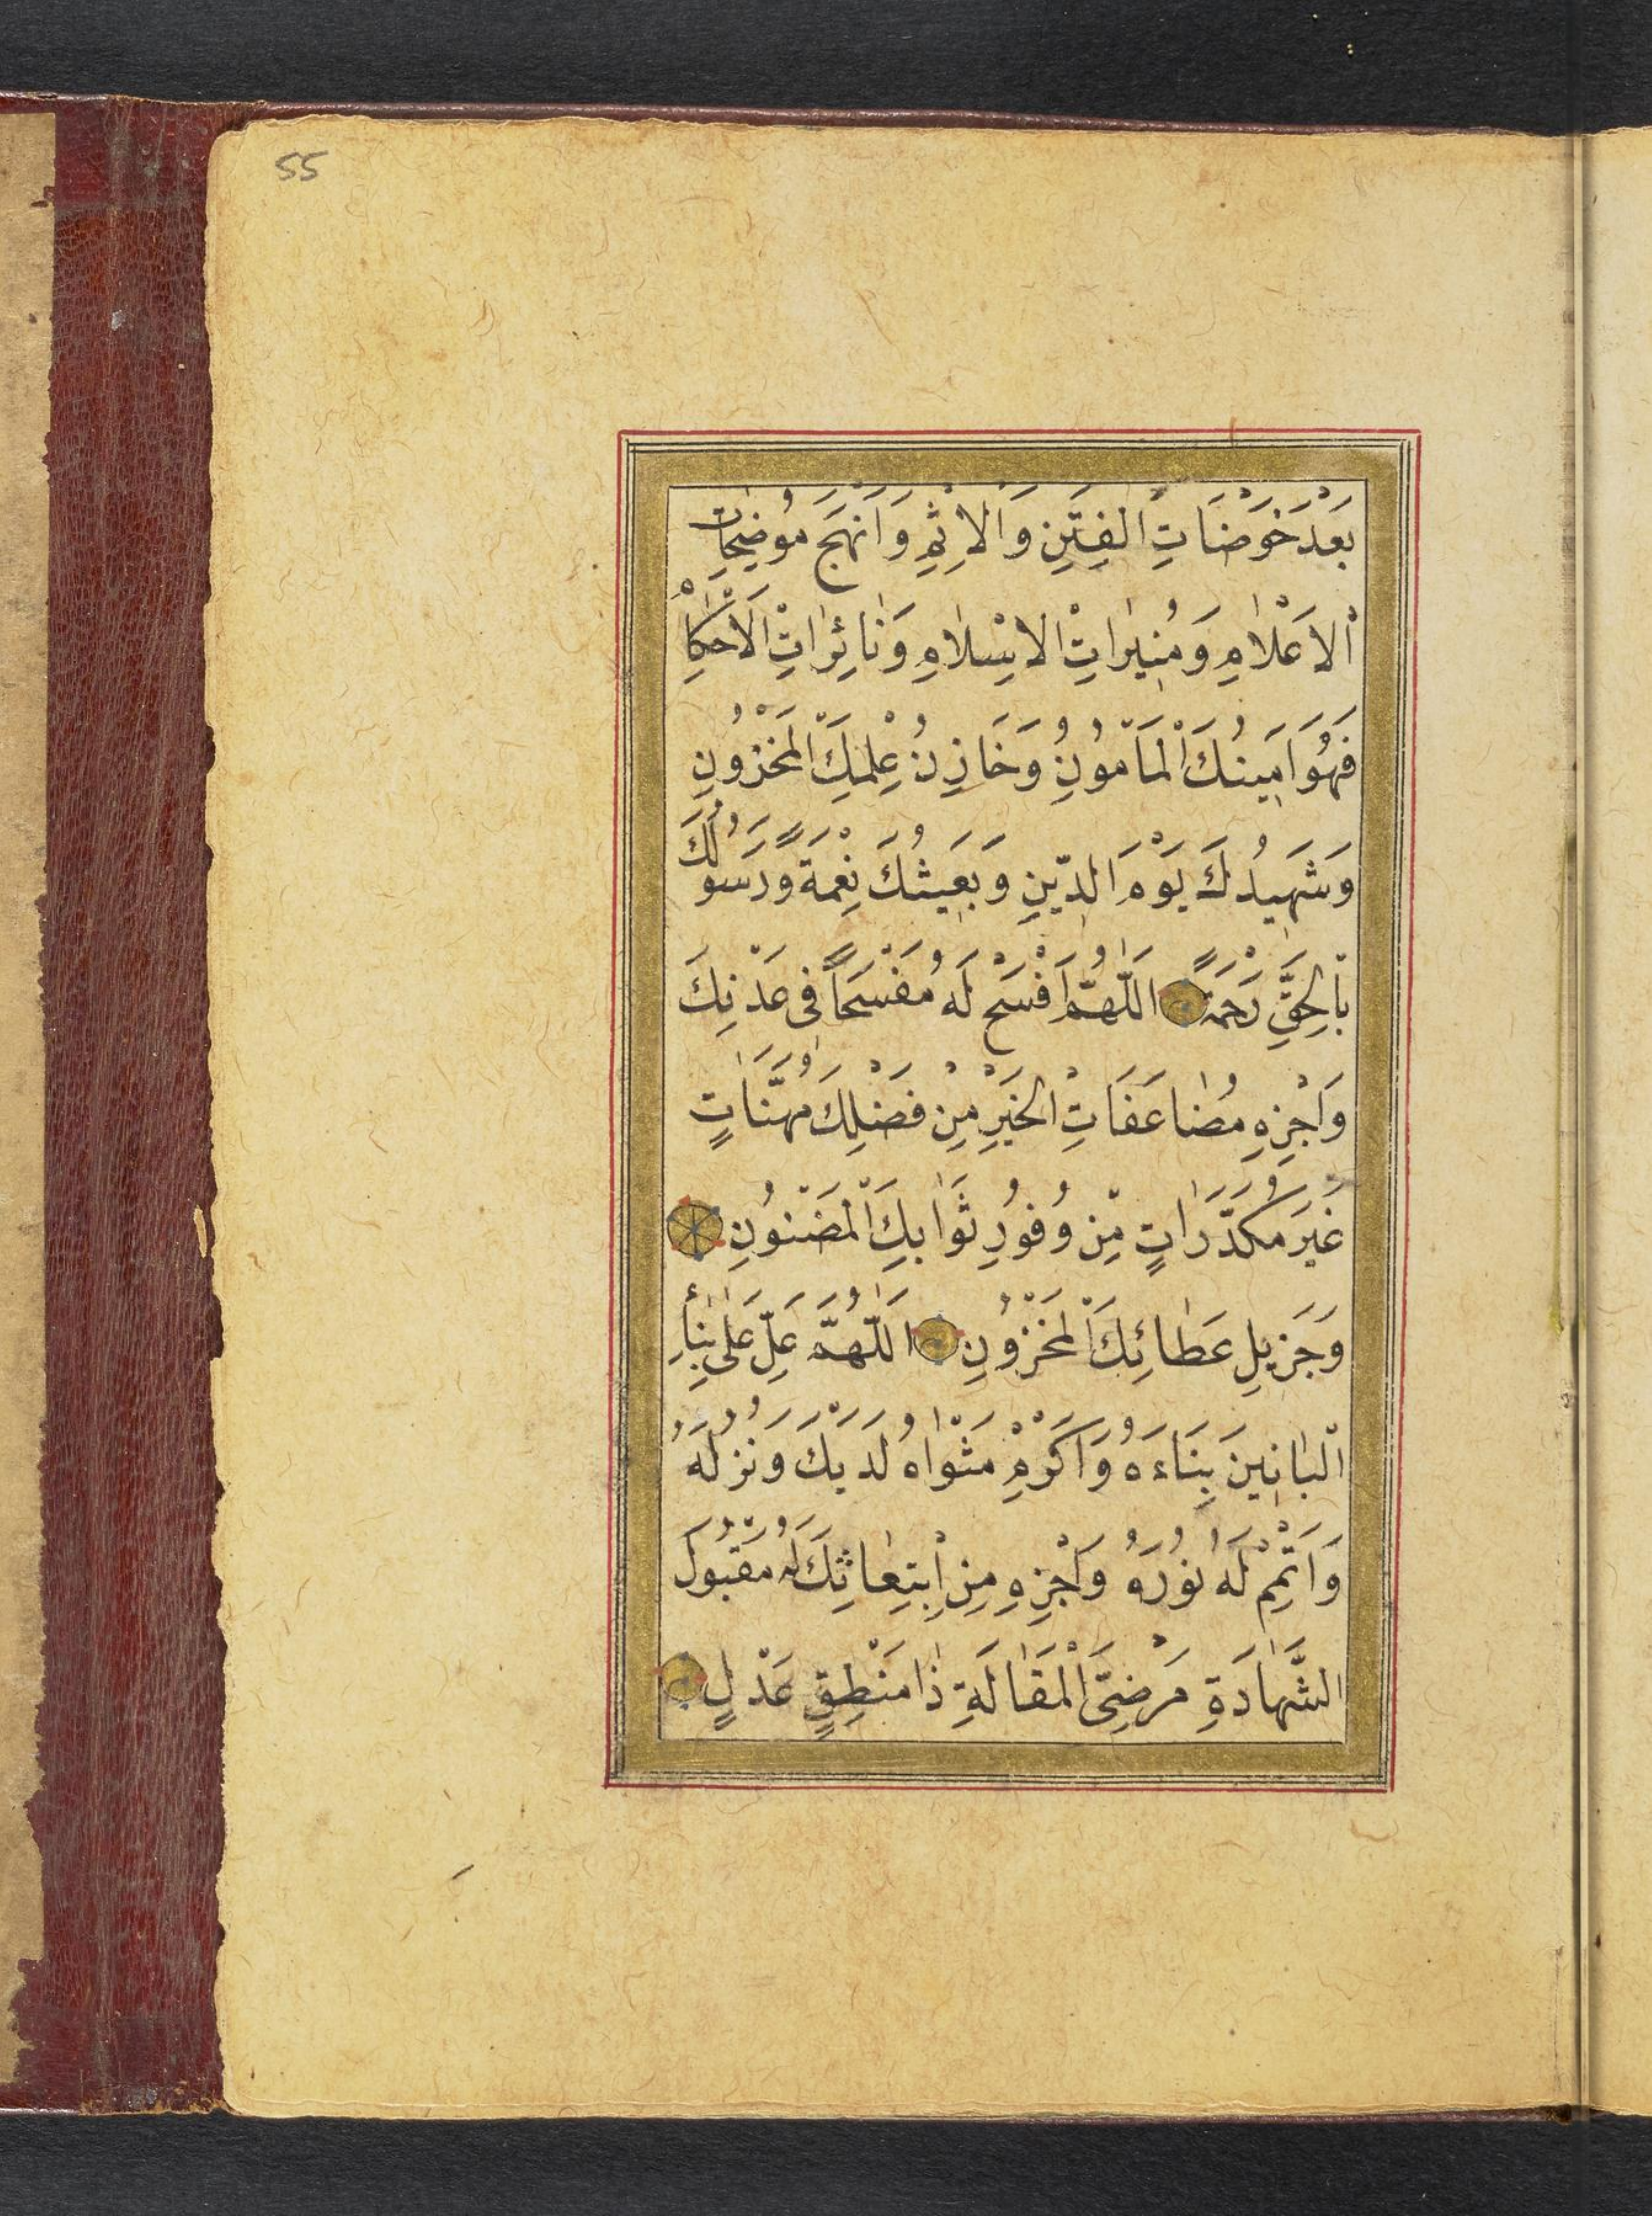 55
بَعْدَ خَوْضَاتِ الْفِتَنِ وَالْاِثْمِ وَاَنْهَجَ مُوضِحَاتِ
الْاَعْلَامِ وَمُنِيرَاتِ الْاِسْلَامِ وَنَائِرَاتِ الْاَحْكَامِ
فَهُوَ اَمِينُكَ الْمَاْمُونُ وَخَازِنُ عِلْمِكَ الْمَخْزُونِ
وَشَهِيدُكَ يَوْمَ الدِّينِ وَبَعِيثُكَ نِعْمَةً وَرَسُولُكَ
بِالْحَقِّ رَحْمَةً اَللّٰهُمَّ افْسَحْ لَهُ مُفْسَحًا فِى عَدْنِكَ
وَاجْزِهِ مُضَاعَفَاتِ الْخَيْرِ مِنْ فَضْلِكَ مُهَنَّاتٍ
غَيْرَ مُكَدَّرَاتٍ مِنْ وُفُورِ ثَوَابِكَ الْمَضْنُونِ
وَجَزِيلِ عَطَائِكَ الْمَخْزُونِ اَللّٰهُمَّ عَلِّ عَلٰى بِنَاءِ
الْبَانِينَ بِنَاءَهُ وَاَكْرِمْ مَثْوَاهُ لَدَيْكَ وَنُزُلَهُ
وَاَتْمِمْ لَهُ نُورَهُ وَاجْزِهِ مِنِ ابْتِعَاثِكَ لَهُ مَقْبُولَ
الشَّهَادَةِ مَرْضِىَّ الْمَقَالَةِ ذَا مَنْطِقٍ عَدْلٍ